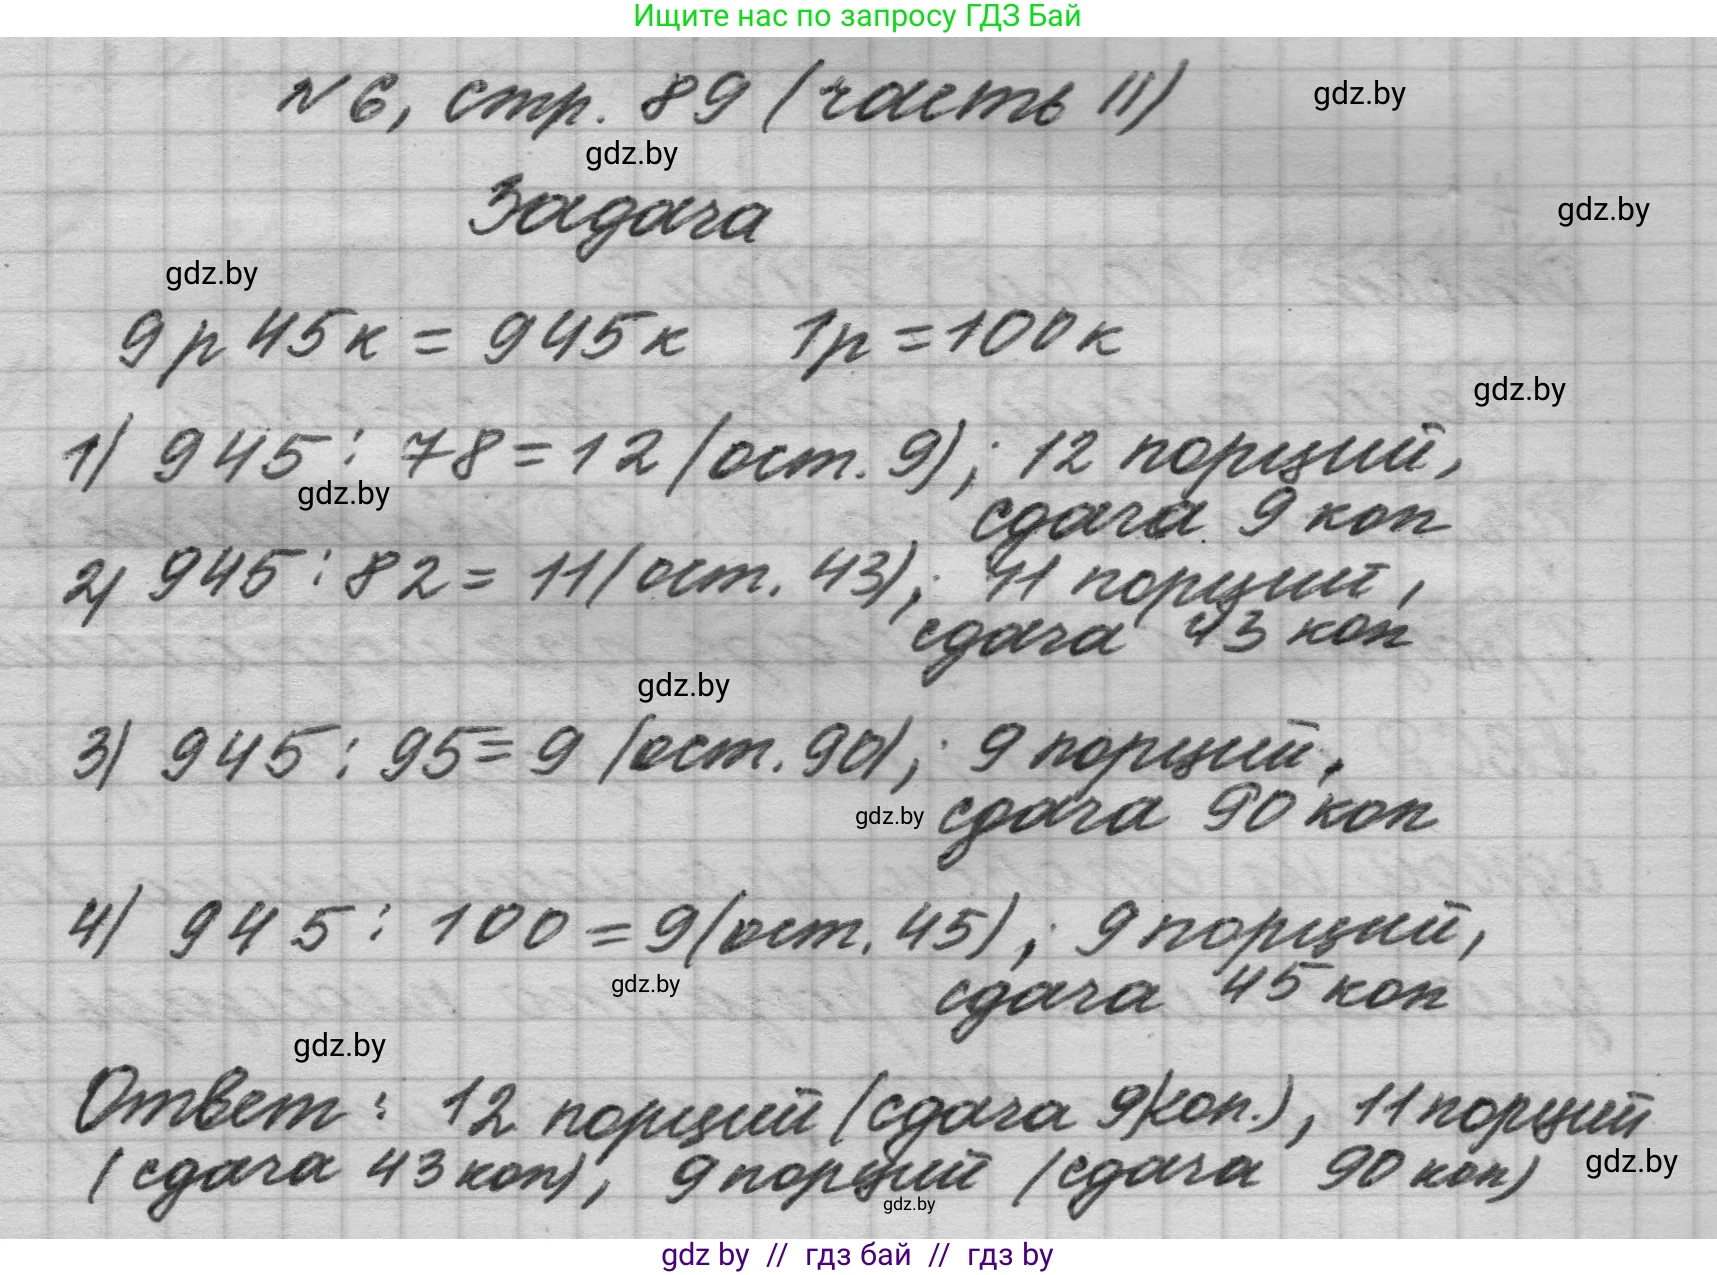 Ищите нас по запросу ГДЗ Бай
№ 6, стр. 89 (часть II)
gdz.by
gdz.by
Задача
gdz.by
gdz.by
9 р 45 к = 945 к 1р = 100 к
gdz.by
1) 945 : 78 = 12 (ост. 9); 12 порций,
gdz.by
сдача 9 коп
2) 945 : 82 = 11 (ост. 43); 11 порций,
сдача 43 коп
gdz.by
3) 945 : 95 = 9 (ост. 90); 9 порций,
gdz.by
сдача 90 коп
4) 945 : 100 = 9 (ост. 45); 9 порций,
gdz.by
сдача 45 коп
gdz.by
Ответ: 12 порций (сдача 9 коп.), 11 порций
(сдача 43 коп), 9 порций (сдача 90 коп)
gdz.by
gdz.by
gdz by // гдз бай // гдз by